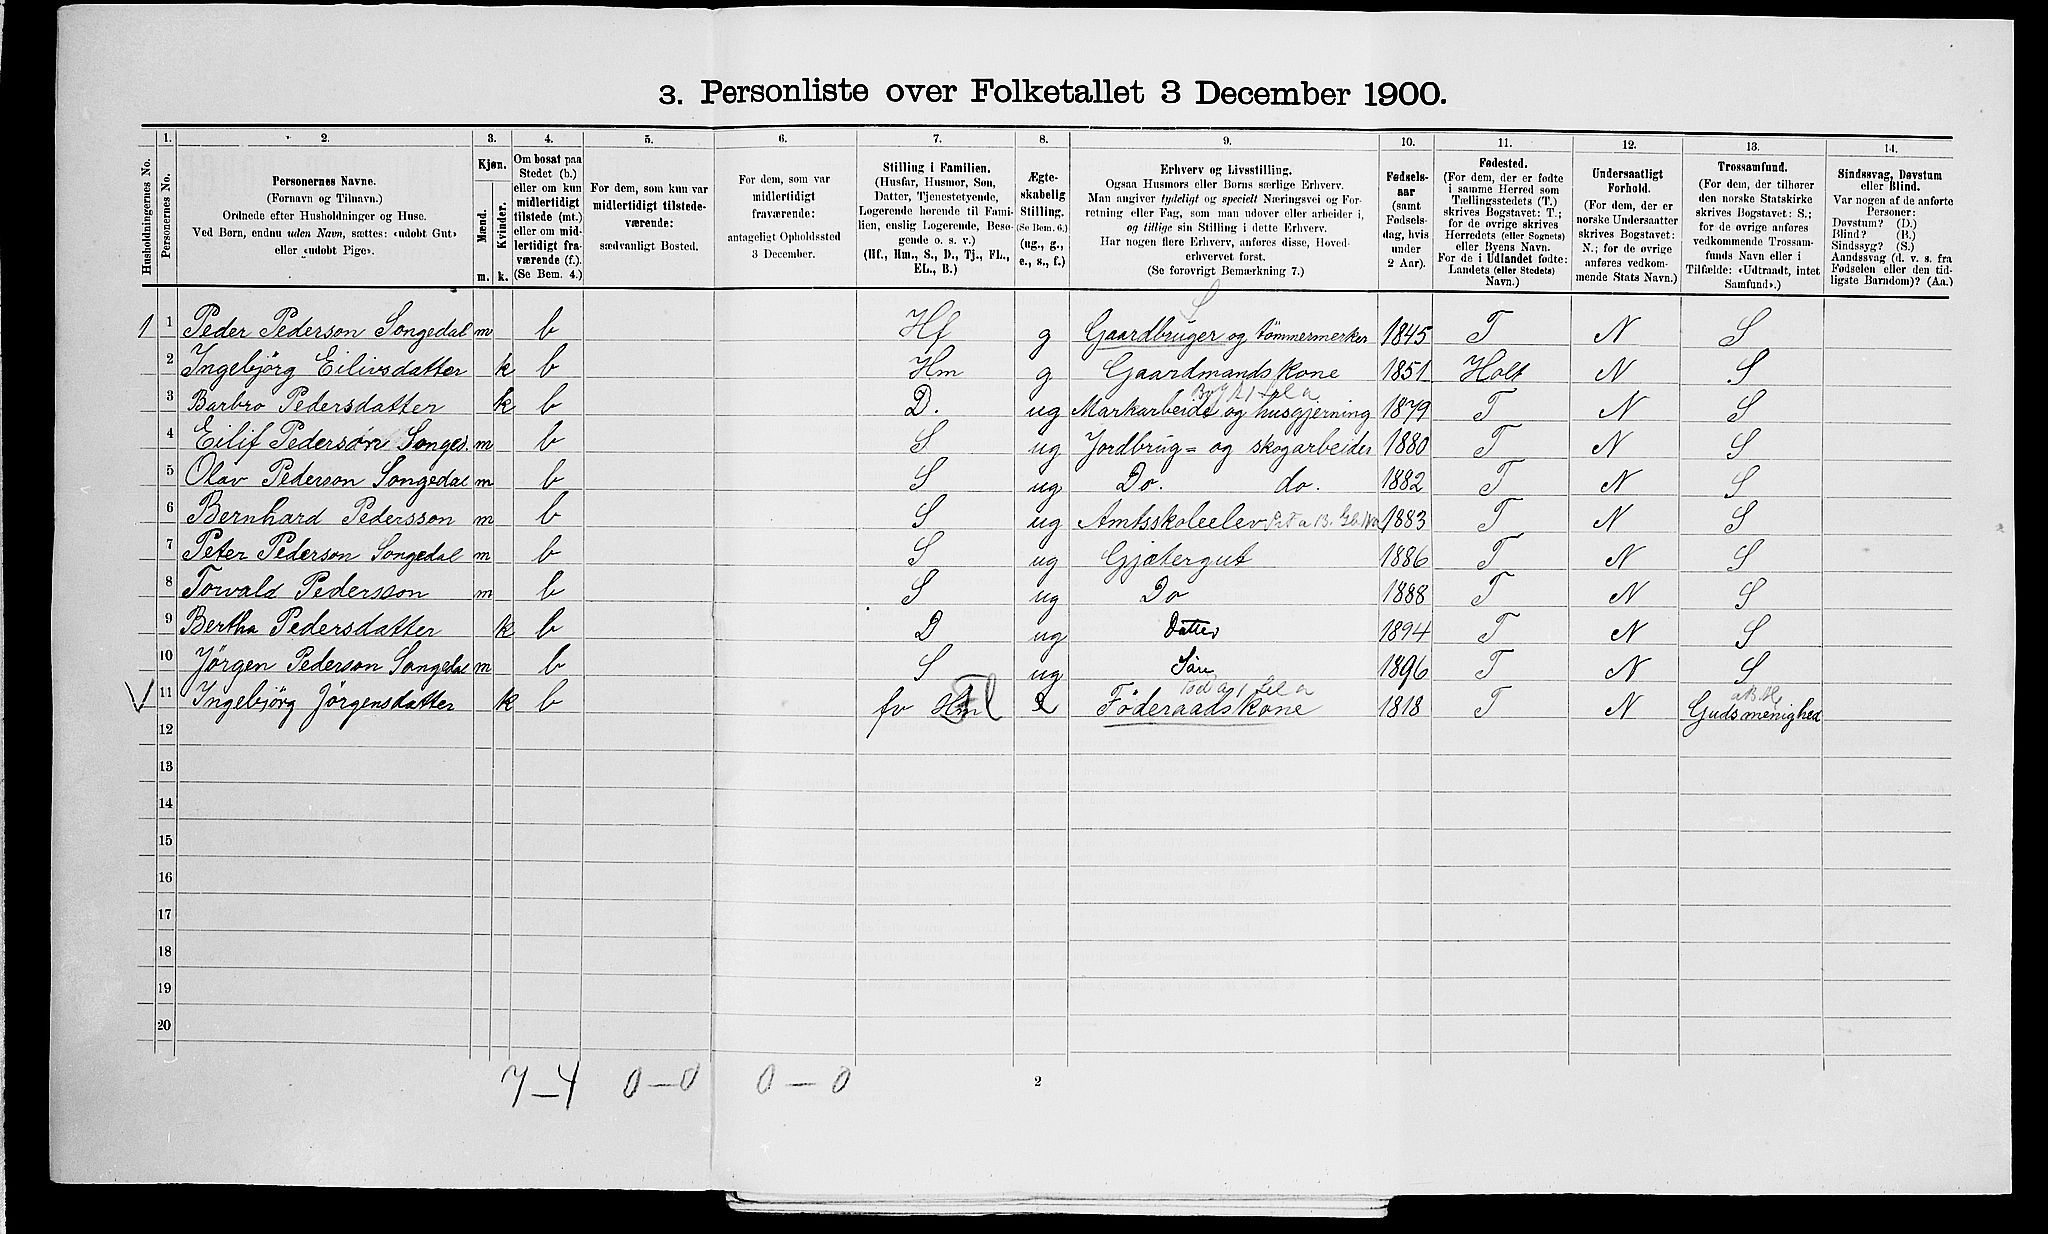 3. Personliste over Folketallet 3 December 1900.
1. 2. 3. 4. 5. 6. 7. 8. 9. 10. 11. 12. 13. 14.
Husholdningernes No.
Personernes No.
Personernes Navne.
(Fornavn og Tilnavn.)
Ordnede efter Husholdninger og Huse.
Ved Børn, endnu uden Navn, sættes: «udøbt Gut»
eller «udøbt Pige».
Kjøn.
Mænd.
Kvinder.
m. k.
Om bosat paa
Stedet (b.)
eller om kun
midlertidigt
tilstede (mt.)
eller om mid-
lertidigt fra-
værende (f.).
(Se Bem. 4.)
For dem, som kun var
midlertidigt tilstede-
værende:
sædvanligt Bosted.
For dem, som var
midlertidigt
fraværende:
antageligt Opholdssted
3 December.
Stilling i Familien.
(Husfar, Husmor, Søn,
Datter, Tjenestetyende,
Logerende hørende til Fami-
lien, enslig Logerende, Besø-
gende o. s. v.)
(Hf., Hm., S., D., Tj., FL.,
EL., B.)
Ægte-
skabelig
Stilling.
(Se Bem. 6.)
(ug., g.,
e., s., f.)
Erhverv og Livsstilling.
Ogsaa Husmors eller Børns særlige Erhverv.
Man angiver tydeligt og specielt Næringsvei og For-
retning eller Fag, som man udøver eller arbeider i,
og tillige sin Stilling i dette Erhverv.
Har nogen flere Erhverv, anføres disse, Hoved-
erhvervet først.
(Se forøvrigt Bemærkning 7.)
Fødsels-
aar
(samt
Fødsels-
dag, hvis
under
2 Aar).
Fødested.
(For dem, der er fødte
i samme Herred som
Tællingsstedets (T.)
skrives Bogstavet: T.;
for de øvrige skrives
Herredets (eller Sognets)
eller Byens Navn.
For de i Udlandet fødte:
Landets (eller Stedets)
Navn.)
Undersaatligt
Forhold.
(For dem, der er
norske Undersaatter
skrives Bogstavet:
N.; for de øvrige
anføres vedkom-
mende Stats Navn.)
Trossamfund.
(For dem, der tilhører
den norske Statskirke
skrives Bogstavet: S.;
for de øvrige anføres
vedkommende Trossam-
funds Navn eller i
Tilfælde: «Udtraadt, intet
Samfund».)
Sindssvag, Døvstum
eller Blind.
Var nogen af de anførte
Personer:
Døvstum? (D.)
Blind? (B.)
Sindssyg? (S.)
Aandssvag (d. v. s. fra
Fødselen eller den tid-
ligste Barndom)? (Aa.)
1 1 Peder Pederson Songedal m b Hf g Gaardbruger og tømmermerker 1845 T N S
2 Ingebjörg Eilivsdatter k b Hm g Gaardmandskone 1851 Holt N S
3 Barbro Pedersdatter k b D. ug Markarbeide og husgjerning 1879 T N S
4 Eilif Pedersøn Songes. m b S ug Jordbrug= og skogarbeider 1880 T N S
5 Olav Pederson Songedal m b S ug Do. do. 1882 T N S
6 Bernhard Pedersson m b S ug Amtsskoleelev 1883 T N S
7 Peter Pederson Songedal m b S ug Gjætergut 1886 T N S
8 Torvald Pedersson m b S ug Do 1888 T N S
9 Bertha Pedersdatter k b D ug Datter 1894 T N S
10 Jörgen Pederson Songedal m b S ug Søn 1896 T N S
11 Ingebjörg Jörgensdatter k b fv Hm Fl Föderaadskone 1818 T N Gudsmenighed
12
13
14
15
16
17
18
19
20
7–4 0–0 0–0
2